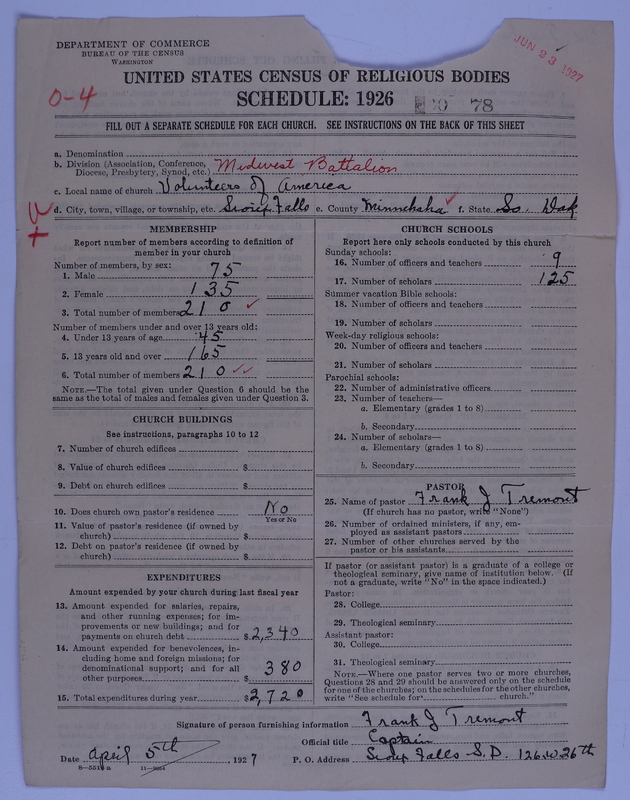 DEPARTMENT OF COMMERCE
BUREAU OF THE CENSUS
WASHINGTON
JUN 23 1927
UNITED STATES CENSUS OF RELIGIOUS BODIES
0-4
SCHEDULE: 1926
78
FILL OUT A SEPARATE SCHEDULE FOR EACH CHURCH. SEE INSTRUCTIONS ON THE BACK OF THIS SHEET
a. Denomination
b. Division (Association, Conference, Diocese, Presbytery, Synod, etc.) Midwest Battalion
c. Local name of church Volunteers of America
d. City, town, village, or township, etc. Sioux Falls e. County Minnehaha f. State So. Dak
MEMBERSHIP
Report number of members according to definition of
member in your church
Number of members, by sex:
1. Male 75
2. Female 135
3. Total number of members 210
Number of members under and over 13 years old:
4. Under 13 years of age 45
5. 13 years old and over 165
6. Total number of members 210
NOTE.—The total given under Question 6 should be the
same as the total of males and females given under Question 3.
CHURCH BUILDINGS
See instructions, paragraphs 10 to 12
7. Number of church edifices
8. Value of church edifices $
9. Debt on church edifices $
10. Does church own pastor's residence No
Yes or No
11. Value of pastor's residence (if owned by
church) $
12. Debt on pastor's residence (if owned by
church) $
EXPENDITURES
Amount expended by your church during last fiscal year
13. Amount expended for salaries, repairs,
and other running expenses; for im-
provements or new buildings; and for
payments on church debt $ 2,340
14. Amount expended for benevolences, in-
cluding home and foreign missions; for
denominational support; and for all
other purposes $ 380
15. Total expenditures during year $ 2,720
CHURCH SCHOOLS
Report here only schools conducted by this church
Sunday schools:
16. Number of officers and teachers 9
17. Number of scholars 125
Summer vacation Bible schools:
18. Number of officers and teachers
19. Number of scholars
Week-day religious schools:
20. Number of officers and teachers
21. Number of scholars
Parochial schools:
22. Number of administrative officers
23. Number of teachers—
a. Elementary (grades 1 to 8)
b. Secondary
24. Number of scholars—
a. Elementary (grades 1 to 8)
b. Secondary
PASTOR
25. Name of pastor Frank J Tremont
(If church has no pastor, write "None")
26. Number of ordained ministers, if any, em-
ployed as assistant pastors
27. Number of other churches served by the
pastor or his assistants
If pastor (or assistant pastor) is a graduate of a college or
theological seminary, give name of institution below. (If
not a graduate, write "No" in the space indicated.)
Pastor:
28. College
29. Theological seminary
Assistant pastor:
30. College
31. Theological seminary
NOTE.—Where one pastor serves two or more churches,
Questions 28 and 29 should be answered only on the schedule
for one of the churches; on the schedules for the other churches,
write "See schedule for church."
Signature of person furnishing information Frank J Tremont
Official title Captain
Date April 5th, 1927 P. O. Address Sioux Falls S.D. 126 W 26th
8—5516a 11—9864